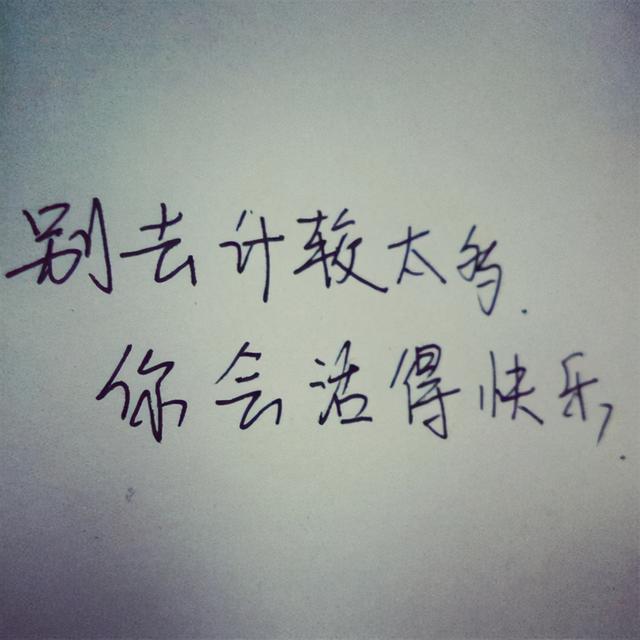 别去计较太多.
你会活得快乐.